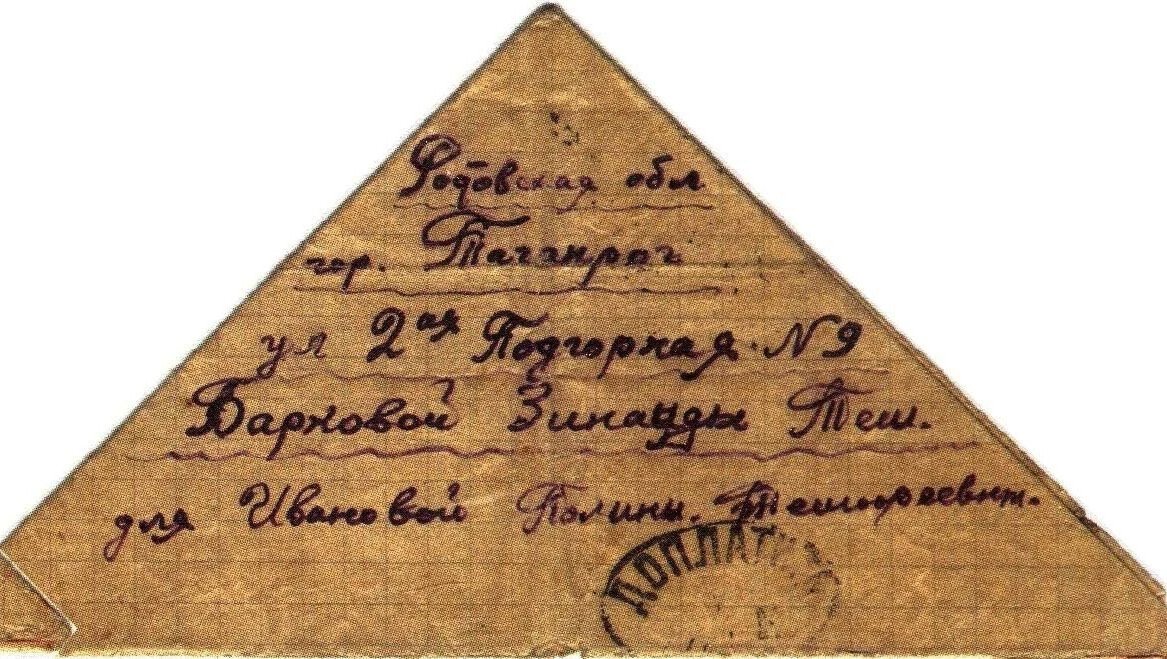 Ростовская обл
гор. Таганрог
ул 2ая Подгорная. N 9
Барковой Зинаиды Тим.
для Ивановой Полины. Тимофеевны.
ДОПЛАТИТЬ